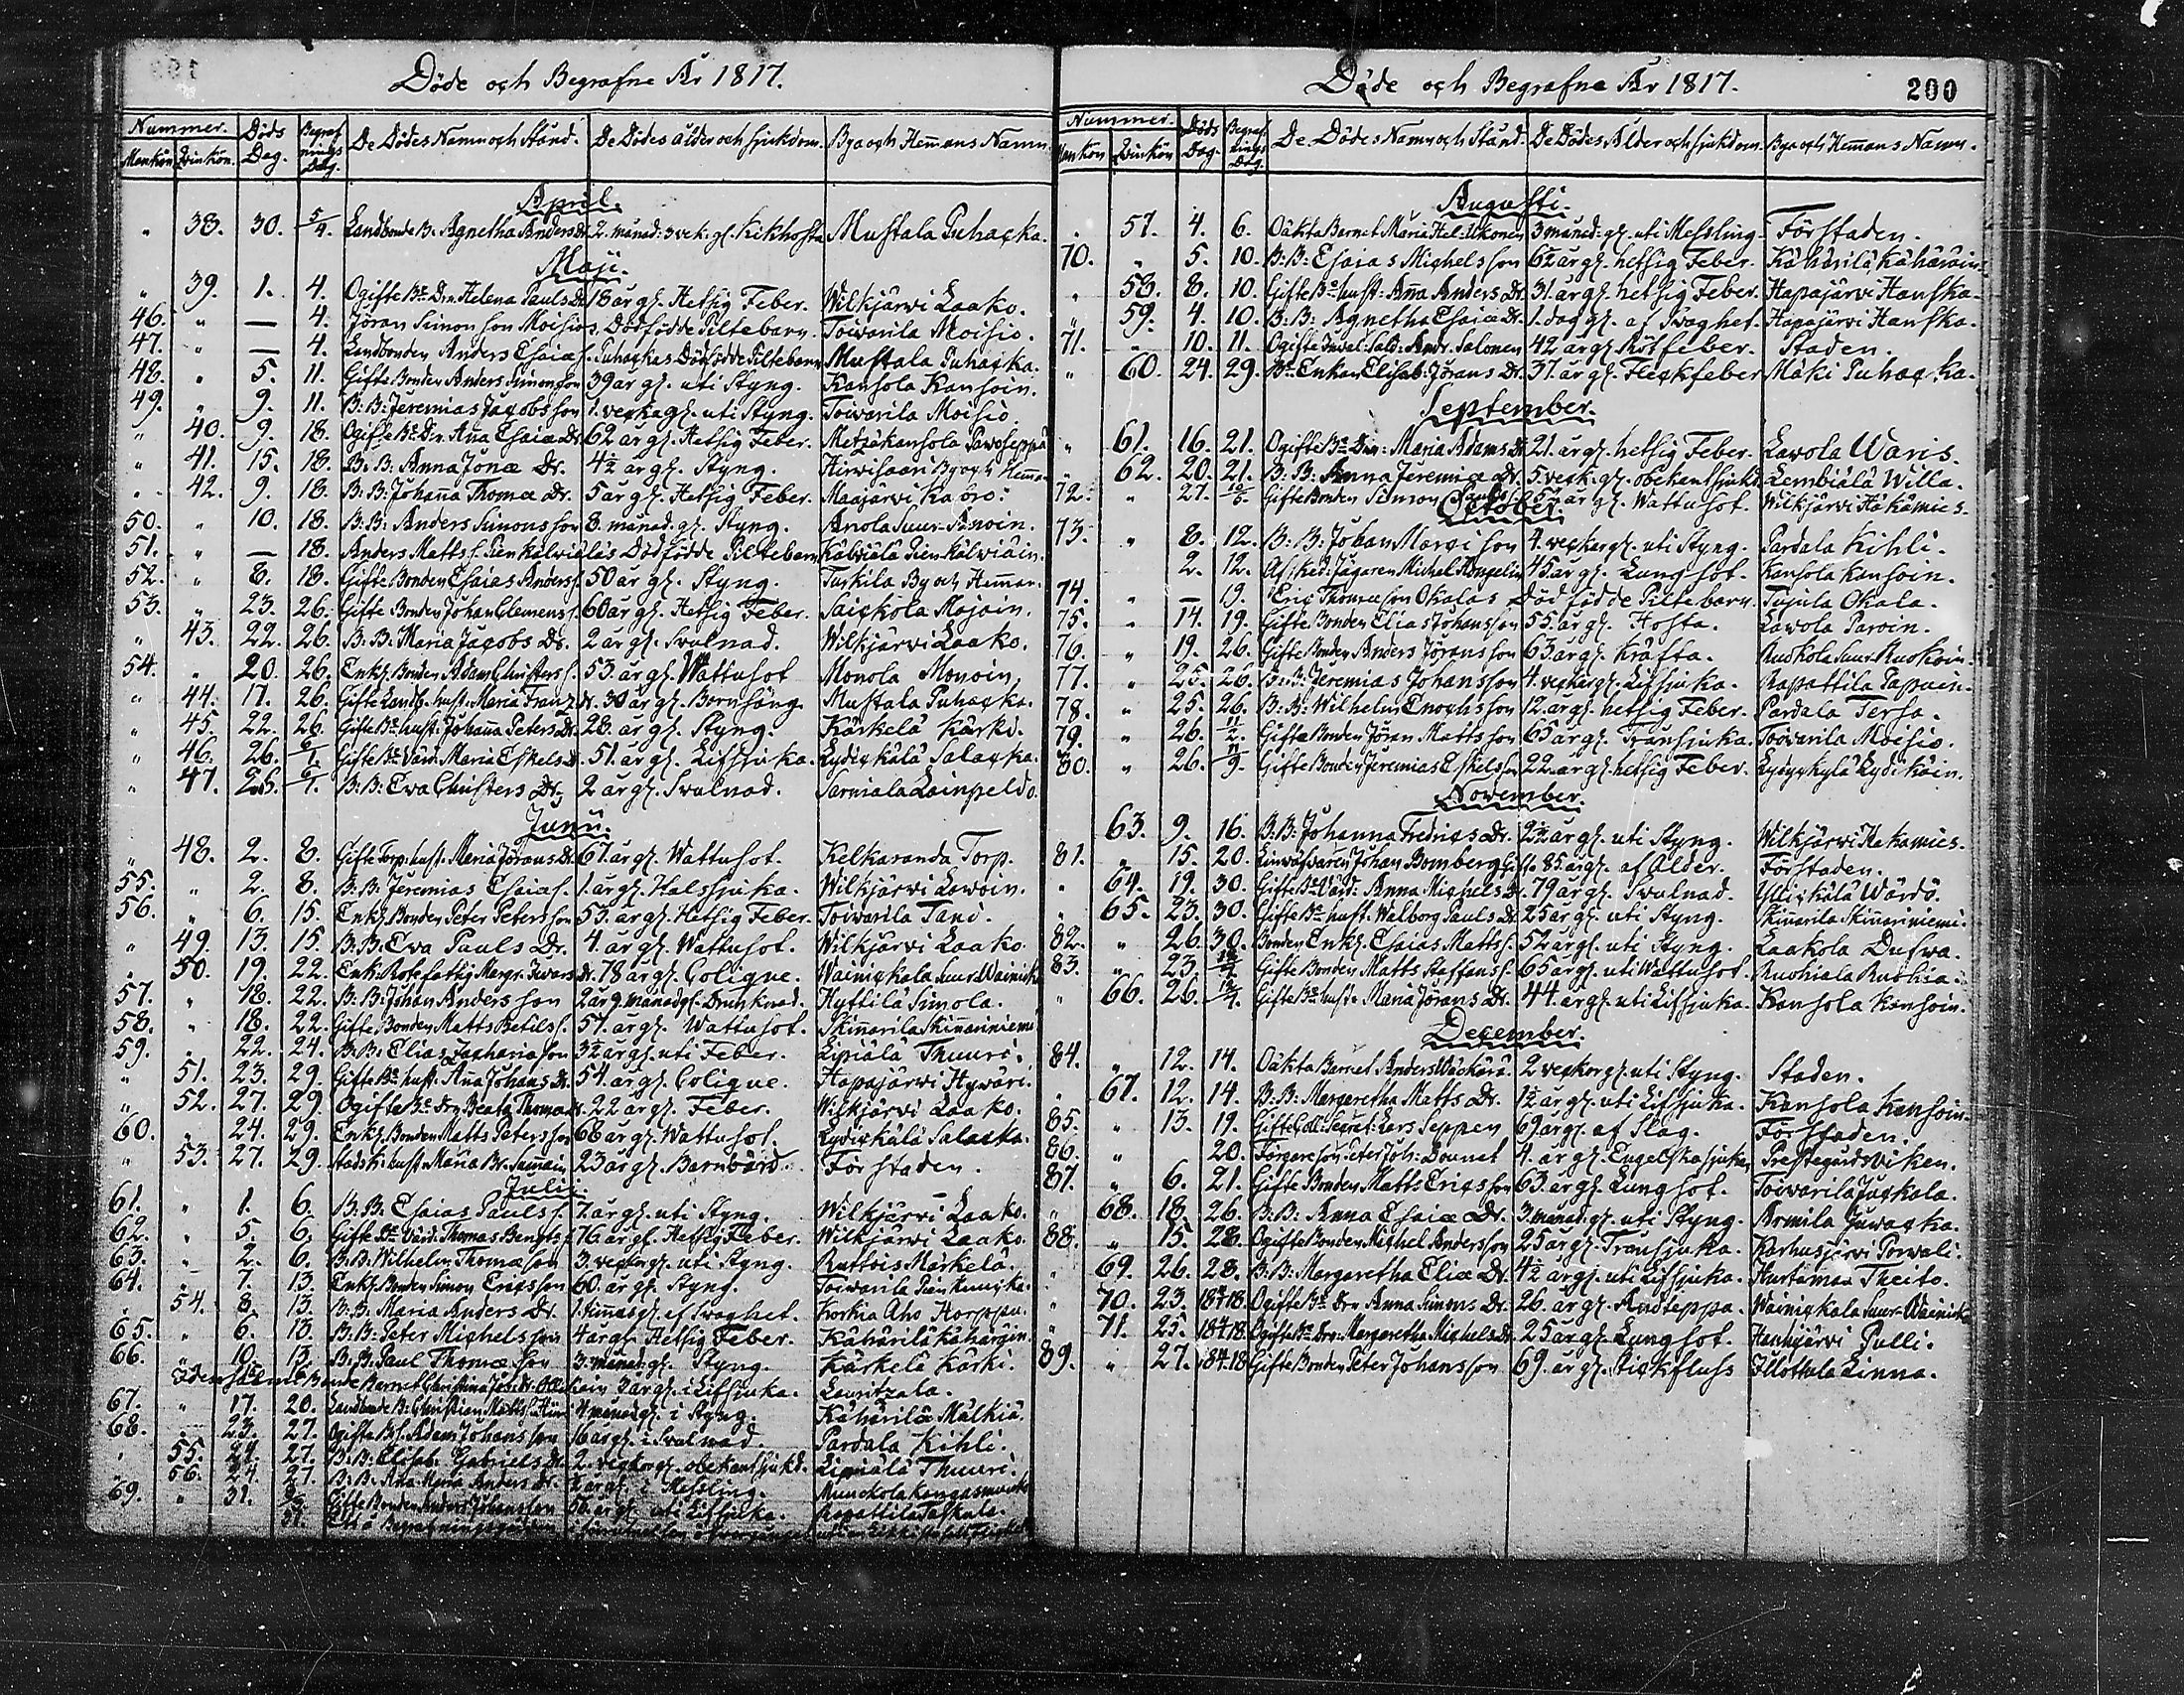 Döde och Begrafne År 1817.
Nummer. Döds Dag. Begrafnings Dag. De Dödes Namn och Stånd. De Dödes ålder och sjukdom. Bya och Hemans Namn
Mankön. Qvinkön.
April.
" 38. 30. 5/4. Landbonde B: Agnetha Anders Dr. 2. månad: 3 vek: gl. Kikhosta Mustala Puhacka.
Maji.
" 39. 1. 4. Ogifte Be. Dr. Helena Pauls Dr. 18 år gl. Hetsig Feber. Wilkjärvi Laako.
46. " — 4. Jöran Simonson Moisios Dödfödde Piltebarn. Toivarila Moisio.
47. " — 4. Landbonden Anders Esaias. Puhackas Dödfödde Piltebarn Mustala Puhacka.
48. " 5. 11. Gifte Bonden Anders Simonson 39 år gl. uti Styng. Kansola Kansoin.
49. " 9. 11. B: B: Jeremias Jacobsson 1. vecka gl. uti Styng. Toivarila Moisio
" 40. 9. 18. Ogifte Be. Dr. Aña Esaiæ Dr. 62 år gl. Hetsig Feber. Metzäkansola
" 41. 15. 18. B: B: Anna Jonæ Dr. 4½ år gl. Styng. Hirvisaari By och Hem:
" 42. 9. 18. B: B: Johaña Thomæ Dr. 5 år gl. Hetsig Feber. Maajärvi
50. " 10. 18. B: B: Anders Simonsson 8. månad. gl. Styng. Anola Suur-Anoin.
51. " — 18. Anders Matts s. Pien Kälviäläs Dödfödde Piltebarn Kälviälä Pien Kälviäin.
52. " 8. 18. Gifte Bonden Esaias Anders s. 50 år gl. Styng. Tuskila By och Heman.
53. " 23. 26. Gifte Bonden Johan Clemens s. 60 år gl. Hetsig Feber. Saickola Mojoin.
" 43. 22. 26. B: B: Maria Jacobs Dr. 2 år gl. Svulnad. Wilkjärvi Laako.
54. " 20. 26. Enkl. Bonden Adam Christers s. 53. år gl. Wattusot Monola Monoin
" 44. 17. 26. Gifte Landb. hust. Maria Franz Dr. 30 år gl. Barnsäng. Mustala Puhacka.
" 45. 22. 26. Gifte Be. hust: Johaña Peters Dr. 28. år gl. Styng. Kärkelä Kärki.
" 46. 26. Gifte Be. Värd. Maria Eskels Dr. 51. år gl. Lifsjuka. Lydickälä Salacka.
" 47. 26. B: B: Ewa Christers Dr. 2 år gl. Svulnad. Sarmala Loinpeldo.
Junii.
" 48. 2. 8. Gifte Torp. hust. Maria Jörans Dr. 67. år gl. Wattusot. Kelkasranda Torp.
55. " 2. 8. B: B: Jeremias Esaias. 1. år gl. Halssjuka. Wilkjärvi Lavoin.
56. " 6. 15. Enkl. Bonden Peter Petersson 53. år gl. Hetsig Feber. Toivarila Tani.
" 49. 13. 15. B: B: Ewa Pauls Dr. 4. år gl. Wattusot. Wilkjärvi Laako.
" 50. 19. 22. Enk: Rotefattig Margr. Ivars Dr. 78 år gl. Colique. Wainickala Suur-Wainicka
57. " 18. 22. B: B: Johan Andersson 2 år 9 månad gl. Drunknad. Hyttilä Simola.
58. " 18. 22. Gifte Bonden Matts Bertils s. 57. år gl. Wattusot. Skinarila Skinariniemi
59. " 22. 24. B: B: Elias Zachariæson 3½ år gl. uti Feber. Lipiälä Thuuri.
" 51. 23. 29. Gifte Be. hust. Aña Johans Dr. 54. år gl. Colique. Hapajärvi Hyväri.
" 52. 27. 29. Ogifte Be. Dr. Beata Thomæ Dr. 22 år gl. Feber. Wilkjärvi Laako.
60. " 24. 29. Enkl. Bonden Matts Petersson 68 år gl. Wattusot. Lydickälä Salacka.
" 53. 27. 29. Maria Br. 23 år gl. Barnbörd. Förstaden.
Julii.
61. " 1. 6. B: B. Esaias Pauls s. 7. år gl. uti Styng. Wilkjärvi Laako.
62. " 5. 6. Gifte Be. Värd. Thomas Bengts s. 76. år gl. Hetsig Feber. Wilkjärvi Laako.
63. " 2. 6. B: B. Wilhelm Thomæson 3. veckor gl. uti Styng. Ruttois Märkelä.
64. " 7. 13. Enkl. Bonden Simon Ericsson 60. år gl. Styng. Toivarila
" 54. 8. 13. B: B. Maria Anders Dr. 1. timma gl. af Svaghet. Korkia Aho Horppu.
65. " 6. 13. B: B: Peter Michelsson 4 år gl. Hetsig Feber. Kähärilä Kähäräin.
66. " 10. 13. B: B. Paul Thomæ son 3. månad. gl. Styng. Kärkelä Kärki.
Bonde Barnet Christina 3 år gl. i Lifsjuka. Lauritzala.
67. " 17. 20. Landbonde B. Christian Matts s. 4 månad gl. i Styng. Kähärilä Mälkiä.
68. " 23. 27. Ogifte B s. Adam Johansson 16 år gl. i Svulnad. Pardala Kihli.
" 55. 24. 27. B: B: Elisab: Gabriels Dr. 2. veckor gl. obekant sjukd. Lipiälä Thuuri.
" 56. 24. 27. B: B. Aña Maria Anders Dr. ½ år gl. i Messling. Munckola
69. " 31. Gifte Bonden Anders Johansson 56. år gl. uti Lifsjuka. Rapattila Taskula.
Döde och Begrafne År 1817.
200
Nummer. Döds Dag. Begrafnings Dag. De Dödes Namn och Stånd. De Dödes Ålder och sjukdom. Bya och Hemans Namn.
Mankön Qvinkön
Augusti.
" 57. 4. 6. Oäkta Barnet Maria Hel: Ukonen 3 månad: gl. uti Messling. Förstaden.
70. " 5. 10. B: B: Esaias Michelsson 6½ år gl. hetsig Feber. Kähärilä Kähäräin.
" 58. 8. 10. Gifte Be. hust: Aña Anders Dr. 31. år gl. hetsig Feber. Hapajärvi Hanska.
" 59. 4. 10. B: B: Agnetha Esaiæ Dr. 1. dag gl. af Svaghet. Hapajärvi Hanska.
71. " 10. 11. Ogifte Inval: Sold: Andr. Salonen 42 år gl. Rötfeber. Staden.
" 60. 24. 29. Be. Enkan Elisab: Jörans Dr. 37. år gl. Fleckfeber Mäki Puhacka.
September.
" 61. 16. 21. Ogifte Be. Dr: Maria Adams Dr. 21. år gl. hetsig Feber. Lavola Waris.
" 62. 20. 21. B: B: Anna Jeremiæ Dr. 5. veck. gl. obekant sjukd. Lembiälä Willa.
72. " 27. Gifte Bonden Simon år gl. Wattusot. Wilkjärvi Häkämies.
October.
73. " 8. 12. B: B: Johan Marcison 4. veckor gl. uti Styng. Pardala Kihli.
2. 12. Afsked: Jägaren Michel 45 år gl. Lungsot. Kansola Kansoin.
74. " — 19. Eric Thomæson Okalas Dödfödde Piltebarn. Tujula Okala.
75. " 14. 19. Gifte Bonden Elias Johansson 55. år gl. Hosta. Lavola Paroin.
76. " 19. 26. Gifte Bonden Anders Jöransson 63 år gl. Kräfta. Ruokola Suur Ruokoin.
77. " 25. 26. B: B: Jeremias Johansson 4. veckor gl. Lifsjuka. Rapattila Papuin.
78. " 25. 26. B: B: Wilhelm Enochsson 12. år gl. hetsig Feber. Pardala Tersa.
79. " 26. 11/2. Gifte Bonden Jöran Mattsson 65 år gl. Transjuka. Toivarila Moisio.
80. " 26. 11/9. Gifte Bonden Jeremias Eskelsson 22. år gl. hetsig Feber. Lydickylä Lydikäin.
November.
63. 9. 16. B: B: Johanna Fredrics Dr. 2½ år gl. uti Styng. Wilkjärvi Hakamies.
81. " 15. 20. Linväfvaren Johan Bomberg Gift. 85 år gl. af Ålder. Förstaden.
" 64. 19. 30. Gifte Be. Värd: Anna Michels Dr. 79 år gl. Svulnad. Yllickälä Wärdö.
" 65. 23. 30. Gifte Be. hust. Walborg Pauls Dr. 25 år gl. uti Styng. Skinarila Skinariniemi.
82. " 26. 30. Bonden Enkl. Esaias Matts s. 52 år gl. uti Styng. Laakola Dufva.
83. " 23. Gifte Bonden Matts Staffans s. 65 år gl. uti Wattusot. Ruohiala Ruohia.
" 66. 26. 12/7. Gifte Be. hust. Maria Jörans Dr. 44. år gl. uti Lifsjuka. Kansola Kansoin.
December.
84. " 12. 14. Oäkta Barnet Anders Wäckärä. 2 veckor gl. uti Styng. Staden.
" 67. 12. 14. B: B: Margaretha Matts Dr. 1½ år gl. uti Lifsjuka. Kansola Kansoin.
85. " 13. 19. Gifte Coll: Secret: Lars Seppen 69 år gl. af Slag. Förstaden.
86. " 20. 4. år gl. Engelska sjukan Prestegårdsviken.
87. " 6. 21. Gifte Bonden Matts Ericsson 63. år gl. Lungsot. Toivarila Juckala.
" 68. 18. 26. B: B: Anna Esaiæ Dr. 3. månad. gl. uti Styng. Armila Juvacka.
88. " 15. 28. Ogifte Bonden Michel Andersson 25 år gl. Transjuka. Karhusjärvi Porvali.
" 69. 26. 28. B: B: Margaretha Eliæ Dr. 4½ år gl. uti Lifsjuka. Hurtamaa Theito.
" 70. 23. 18 4/1 18. Ogifte Be. Dr. Anna Simons Dr. 26. år gl. Andteppa. Wainickala Suur-Wainicka
" 71. 25. 18 4/1 18. Ogifte Be. Dr: Margaretha Michels Dr. 25 år gl. Lungsot. Hanhijärvi Pulli.
89. " 27. 18 4/1 18. Gifte Bonden Peter Johansson 69. år gl. Stickfluss Illottula Linna.